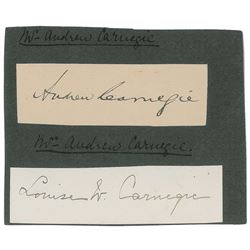 Mr. Andrew Carnegie
Andrew Carnegie
Mrs. Andrew Carnegie.
Louise W. Carnegie